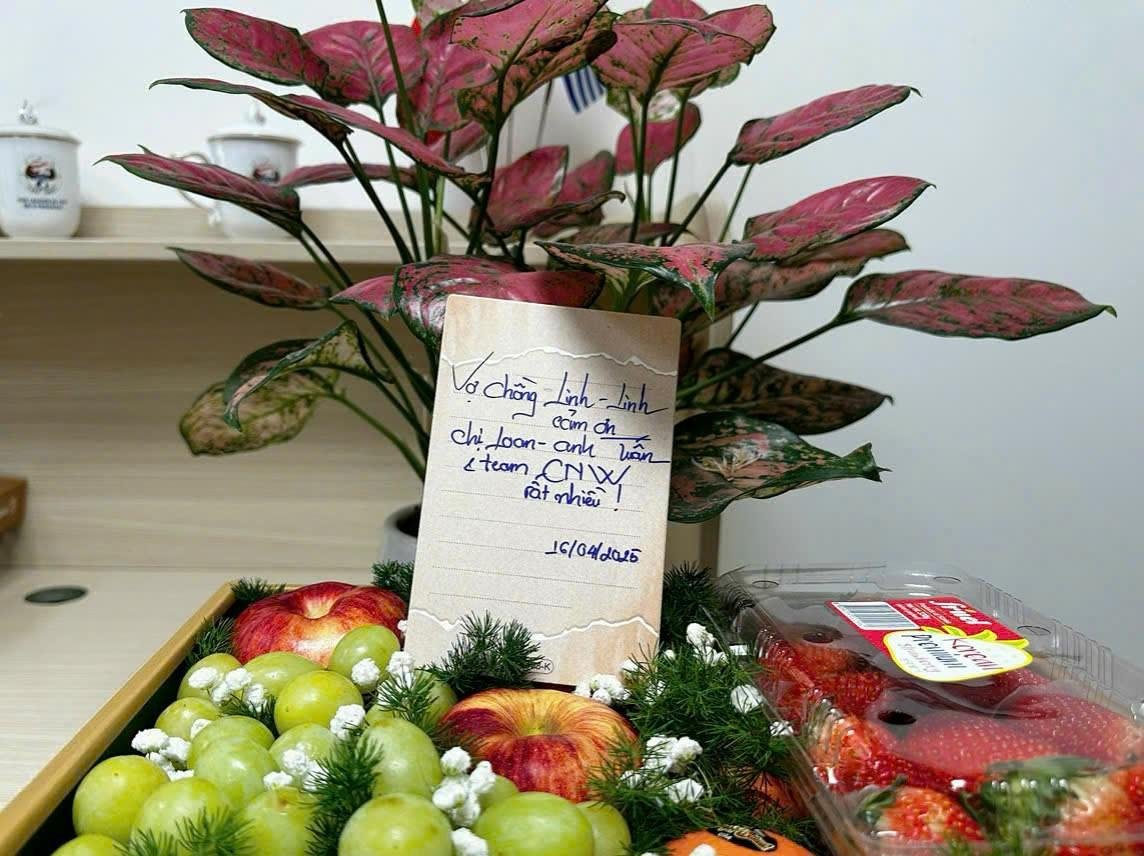 Vợ chồng Linh - Linh
cảm ơn
chị Loan - anh Luân
& team CNW
rất nhiều !
16/04/2025
Korean
Premium